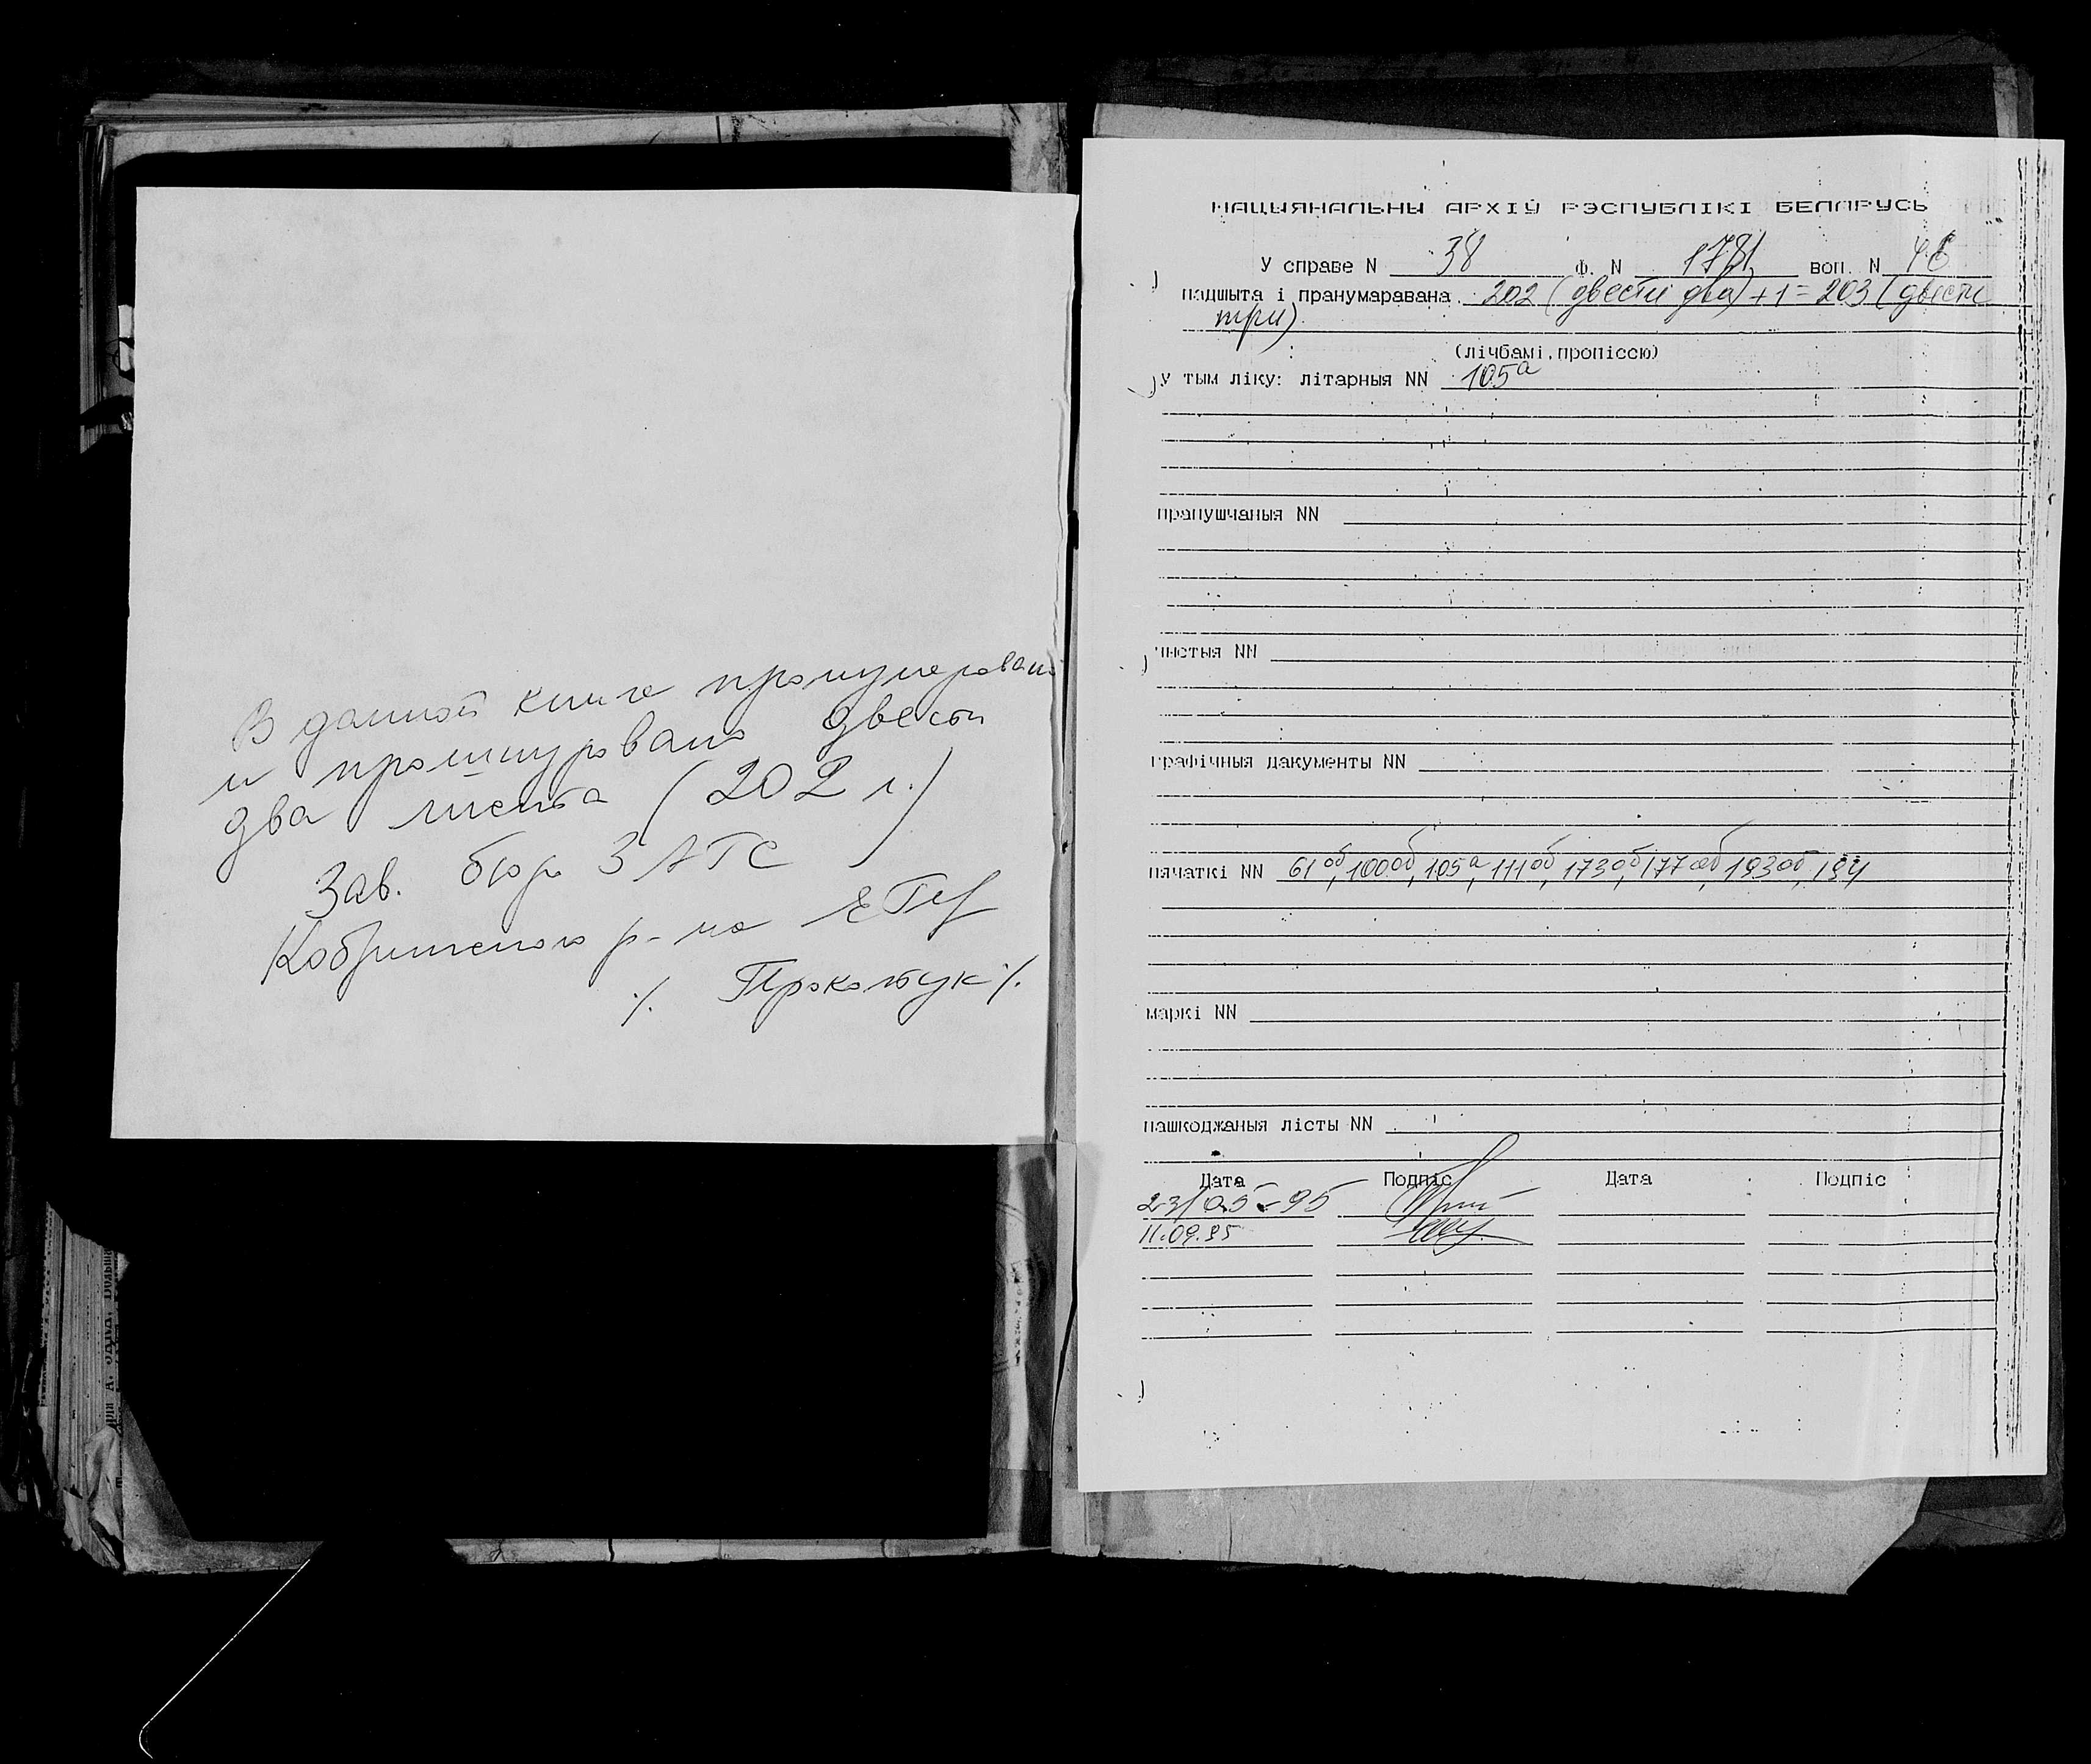 В данной книге пронумеровано
и прошнуровано двести
два листа (202 л.)
Зав. бюро ЗАГС
Кобринского р-на
/. Прокопчук /.
НАЦЫЯНАЛЬНЫ АРХІЎ РЭСПУБЛІКІ БЕЛАРУСЬ
У справе N 38 Ф. N 1781 воп. N
падшыта і пранумаравана 202 (двести два) +1= 203 (двести
три)
(лічбамі, пропіссю)
у тым ліку: літарныя NN 105а
прапушчаныя NN
чыстыя NN
графічныя дакументы NN
пячаткі NN 61об, 100об, 105а, 111об, 173об, 177об, 193об, 194
маркі NN
пашкоджаныя лісты NN
Дата Подпіс Дата Подпіс
23/05-95
11.09.95